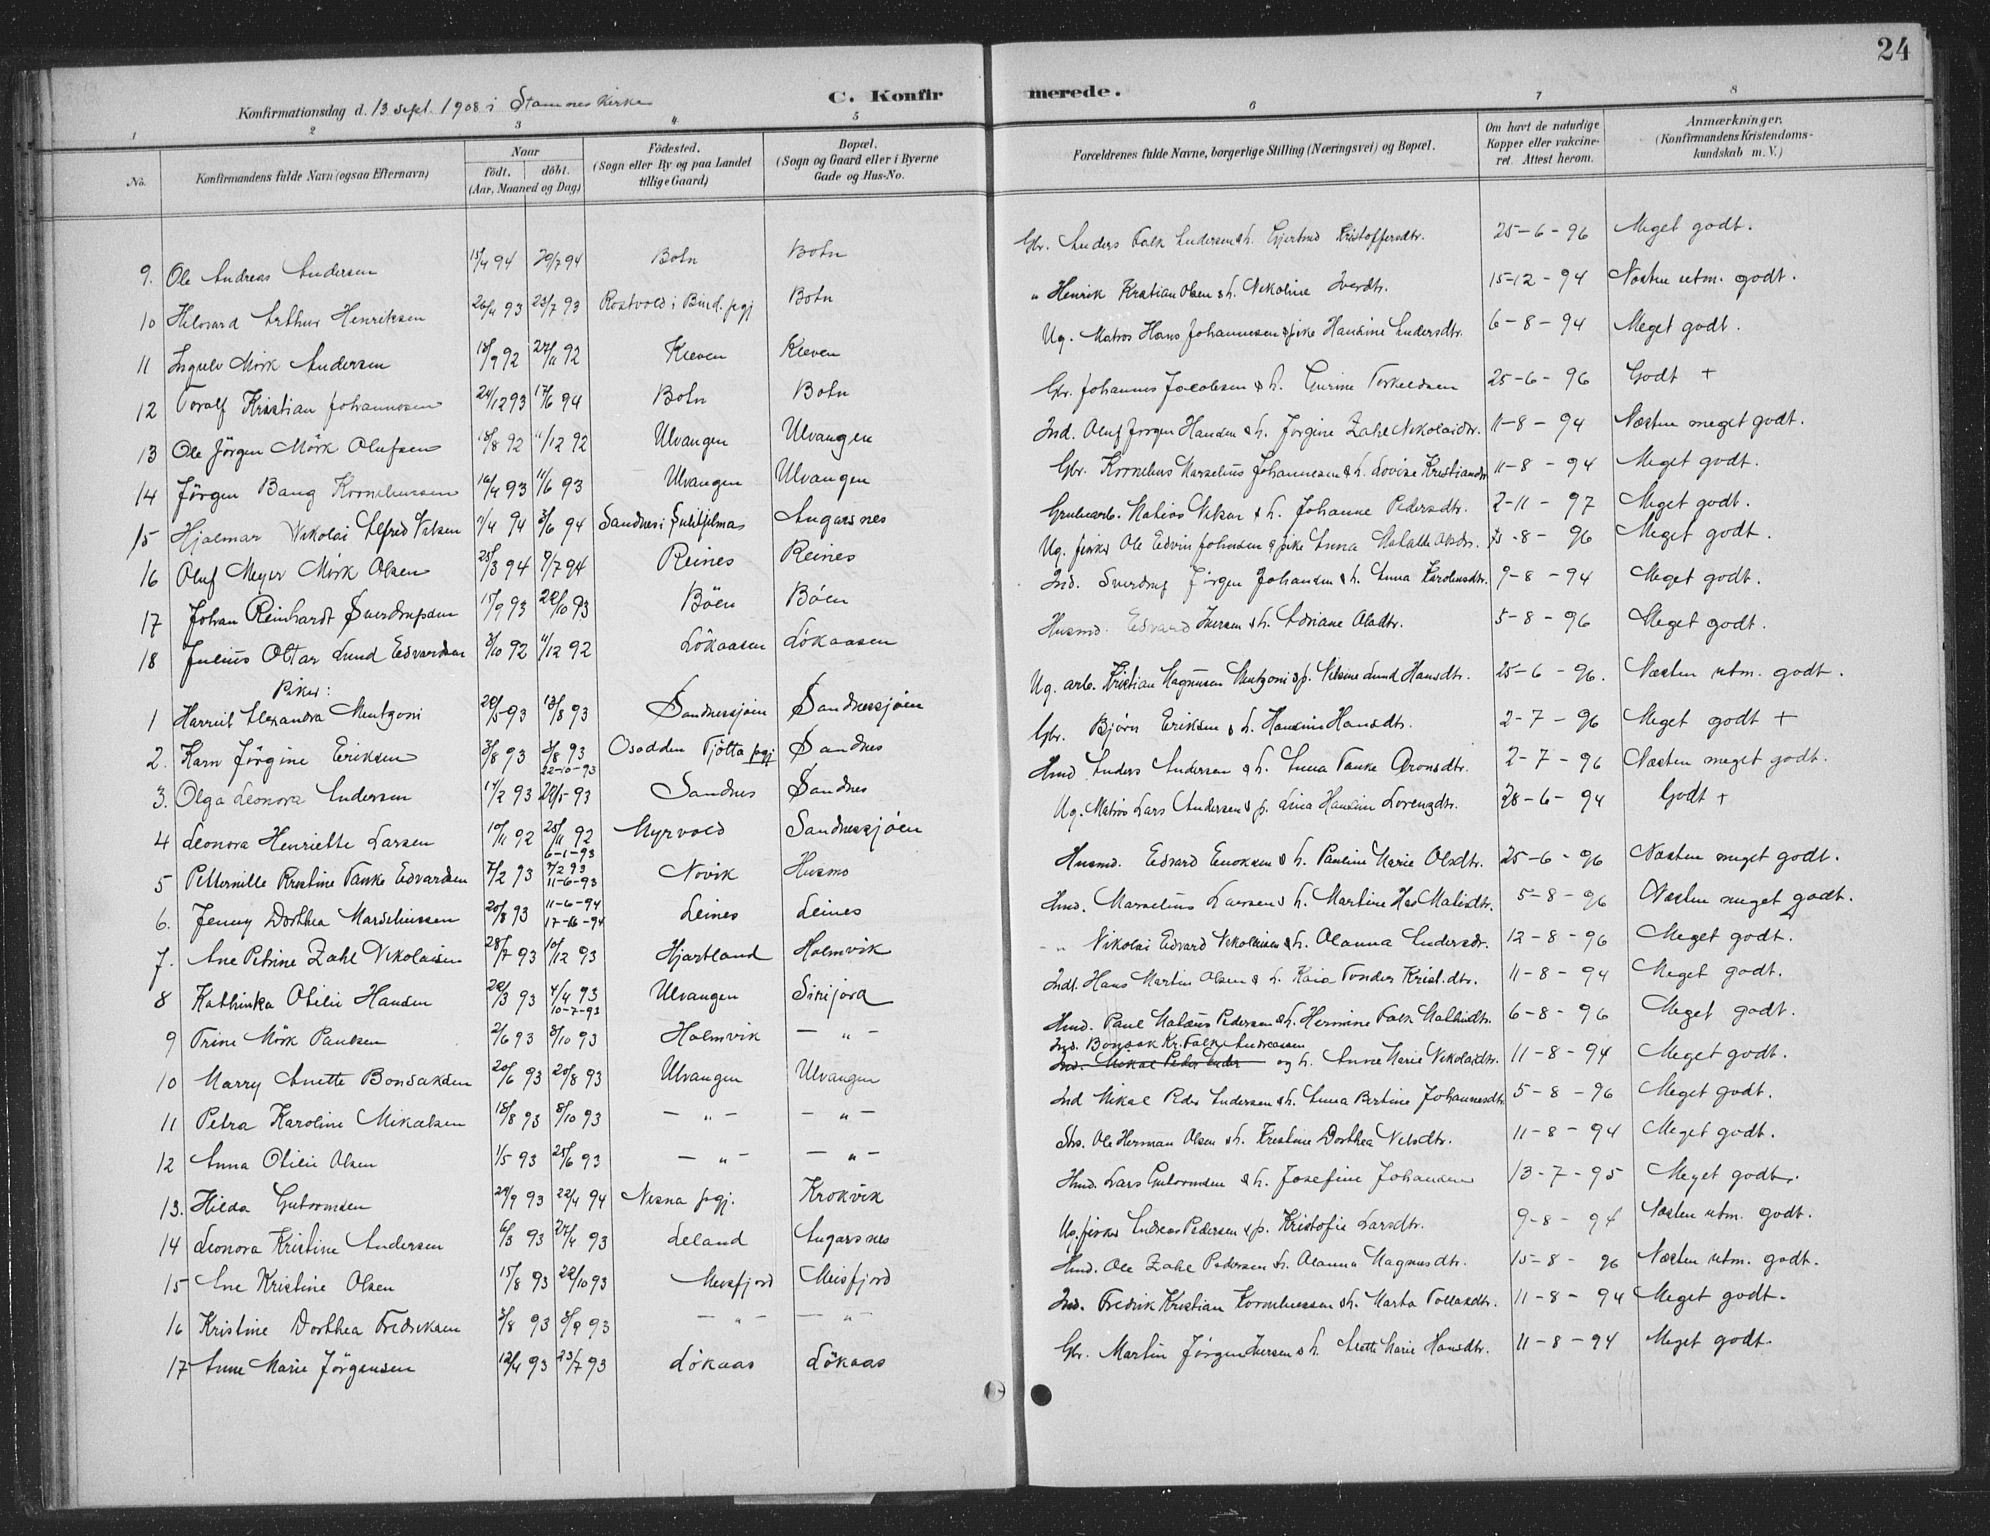 24
Konfirmationsdag d. 13 sept. 1908 i Stamnes Kirke
C. Konfirmerede.
1 2 3 4 5 6 7 8
No. Konfirmandens fulde Navn (ogsaa Efternavn) Naar født. døbt. (Aar, Maaned og Dag) Fødested. (Sogn eller By og paa Landet tillige Gaard) Bopæl. (Sogn og Gaard eller i Byerne Gade og Hus-No. Forældrenes fulde Navne, borgerlige Stilling (Næringsvei) og Bopæl. Om havt de naturlige Kopper eller vakcineret. Attest herom. Anmærkninger. (Konfirmandens Kristendomskundskab m. V.)
9. Ole Andreas Andersen 15/4 94 29/7 94 Botn Botn Gbr. Anders Falk Andersen & h. Gjertrud Kristoffersdtr. 25-6-96 Meget godt.
10 Hilvard Arthur Henriksen 26/4 93 23/7 93 Rostvold i Bind. pgj Botn " Henrik Kristian Olsen & h. Nikoline Iversdtr. 15-12-94 Næsten utm. godt.
11 Ingulv Mörk Andersen 18/9 92 27/11 92 Kleven Kleven Ug. Matros Hans Johannesen & pike Hansine Andersdtr. 6-8-94 Meget godt.
12 Toralf Kristian Johannesen 24/12 93 17/6 94 Botn Botn Gbr. Johannes Jacobsen & h. Gurine Torkeldsen 25-6-96 Godt +
13 Ole Jörgen Mörk Olufsen 18/8 92 11/12 92 Ulvangen Ulvangen Ind. Oluf Jörgen Hansen & h. Jörgine Zahl Nikolaidtr. 11-8-94 Næsten meget godt.
14 Jörgen Bang Korneliussen 16/4 93 11/6 93 Ulvangen Ulvangen Gbr. Kornelius Marselius Johannesen & h. Lovise Kristiansdtr. 11-8-94 Meget godt.
15 Hjalmar Nikolai Alfred Nilsen 94 3/6 94 Sandnes i Sulitjelma Angarsnes Grubearb. Matias Nilsen & h. Johanne Pedersdtr. 2-11-97 Meget godt.
16 Oluf Meyer Mörk Olsen 25/3 94 9/7 94 Reines Reines Ug. fisker Ole Edvin Johnsen & pike Anna Olsdtr. -8-96 Meget godt.
17 Johan Reinhardt Sverdrupsen 15/9 93 22/10 93 Böen Böen Ind. Sverdrup Jörgen Johansen & h. Anna Karoliusdtr. 9-8-94 Meget godt.
18 Julius Oltar Lund Edvardsen 3/10 92 11/12 92 Lökaasen Lökaasen Husmd. Edvard Iversen & h. Adriane Olsdtr. 5-8-96 Meget godt.
Piker:
1 Harriet Alexandra Mentzoni 20/5 93 13/8 93 Sandnessjöen Sandnessjöen Ug. arb. Kristian Magnusen Mentzoni & p. Nilsine Lund Hansdtr. 25-6-96. Næsten utm. godt.
2. Karn Jörgine Eriksen 3/8 93 3/8 93 22-10-93 Osodden Tjötta pgj Sandnes Gbr. Björn Eriksen & h. Hansine Hansdtr. 2-7-96 Meget godt +
3. Olga Leonora Andersen 17/2 93 22/5 93 Sandnes Sandnes Hmd Anders Andersen & h. Anna Tanke Aronsdtr. 2-7-96 Næsten meget godt.
4 Leonora Henriette Larsen 10/11 92 25/11 92 6-1-93 Myrvold Sandnessjöen Ug. Matros Lars Andersen & p. Lina Hansine Lorenzdtr. 28-6-94 Godt +
5 Petternille Kristine Tanke Edvardsen 7/2 93 7/2 93 11-6-93 Novik Husmo Husmd. Edvard Enoksen & h. Pauline Marie Olsdtr. 25-6-96 Næsten meget godt.
6. Jenny Dorthea Marseliussen 20/8 93 11-6-94 17-6-94 Leines Leines Hmd. Marselius Larsen & h. Martine Has Matisdtr. 5-8-96 Næsten meget godt.
7. Ane Petrine Zahl Nikolaisen 28/7 93 10/12 93 Hjartland Holmvik - " Nikolai Edvard Nikolaisen & h. Olanna Andersdtr. 12-8-96 Meget godt.
8 Kathinka Otilie Hansen 20/3 93 4/4 93 10-7-93 Ulvangen Sinijord Indt. Hans Martin Olsen & h. Kaia Tonder Krist.dtr. 11-8-94 Meget godt.
9 Trine Mörk Paulsen 2/6 93 8/10 93 Holmvik — " — Hmd. Paul Mateus Pedersen & h. Hermine Falk Mathisdtr. 6-8-96 Meget godt.
10 Marry Anette Bonsaksen 20/6 93 20/8 93 Ulvangen Ulvangen Ind. Bonsak Kr. Falk Andreassen Ind. Mikal Peder Ander og h. Anne Marie Nikolaidtr. 11-8-94 Meget godt.
11 Petra Karoline Mikalsen 18/8 93 8/10 93 — " — — " — Ind Mikal Peder Andersen & h. Anna Bertine Johannesdtr. 5-8-96 Meget godt.
12 Anna Otilie Olsen 1/5 93 25/6 93 — " — — " — Ole Herman Olsen & h. Kristine Dorthea Nilsdtr. 11-8-94 Meget godt.
13. Hilda Guttormsen 29/9 93 22/4 94 Nesna pgj. Krokvik Hmd. Lars Guttormsen & h. Josefine Johansen 13-7-95 Meget godt.
14 Leonora Kristine Andersen 6/3 93 27/4 93 Leland Angarsnes Ug. fisker Andreas Pedersen & p. Kristofie Larsdtr. 9-8-94 Næsten utm. godt.
15 Ane Kristine Olsen 15/8 93 22/10 93 Meisfjord Meisfjord Hmd. Ole Zahl Pedersen & h. Olanna Magnusdtr. 15-8-96 Næsten utm. godt.
16 Kristine Dorthea Fredriksen 3/8 93 3/9 93 — " — — " Ind. Fredrik Kristian Korneliussen & h. Marta Tollaksdtr. 11-8-94 Meget godt.
17 Anne Marie Jörgensen 12/4 93 23/7 93 Lökaas Lökaas Gbr. Martin Jörgen Iversen & h. Anette Marie Hansdtr. 11-8-94 Meget godt.